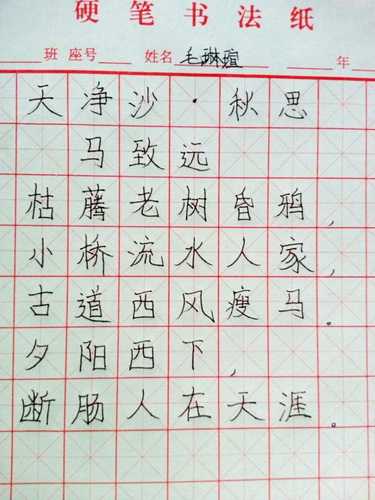 硬笔书法纸
班 座号 姓名 毛琳瑄 年
天净沙·秋思
马致远
枯藤老树昏鸦，
小桥流水人家，
古道西风瘦马。
夕阳西下，
断肠人在天涯。